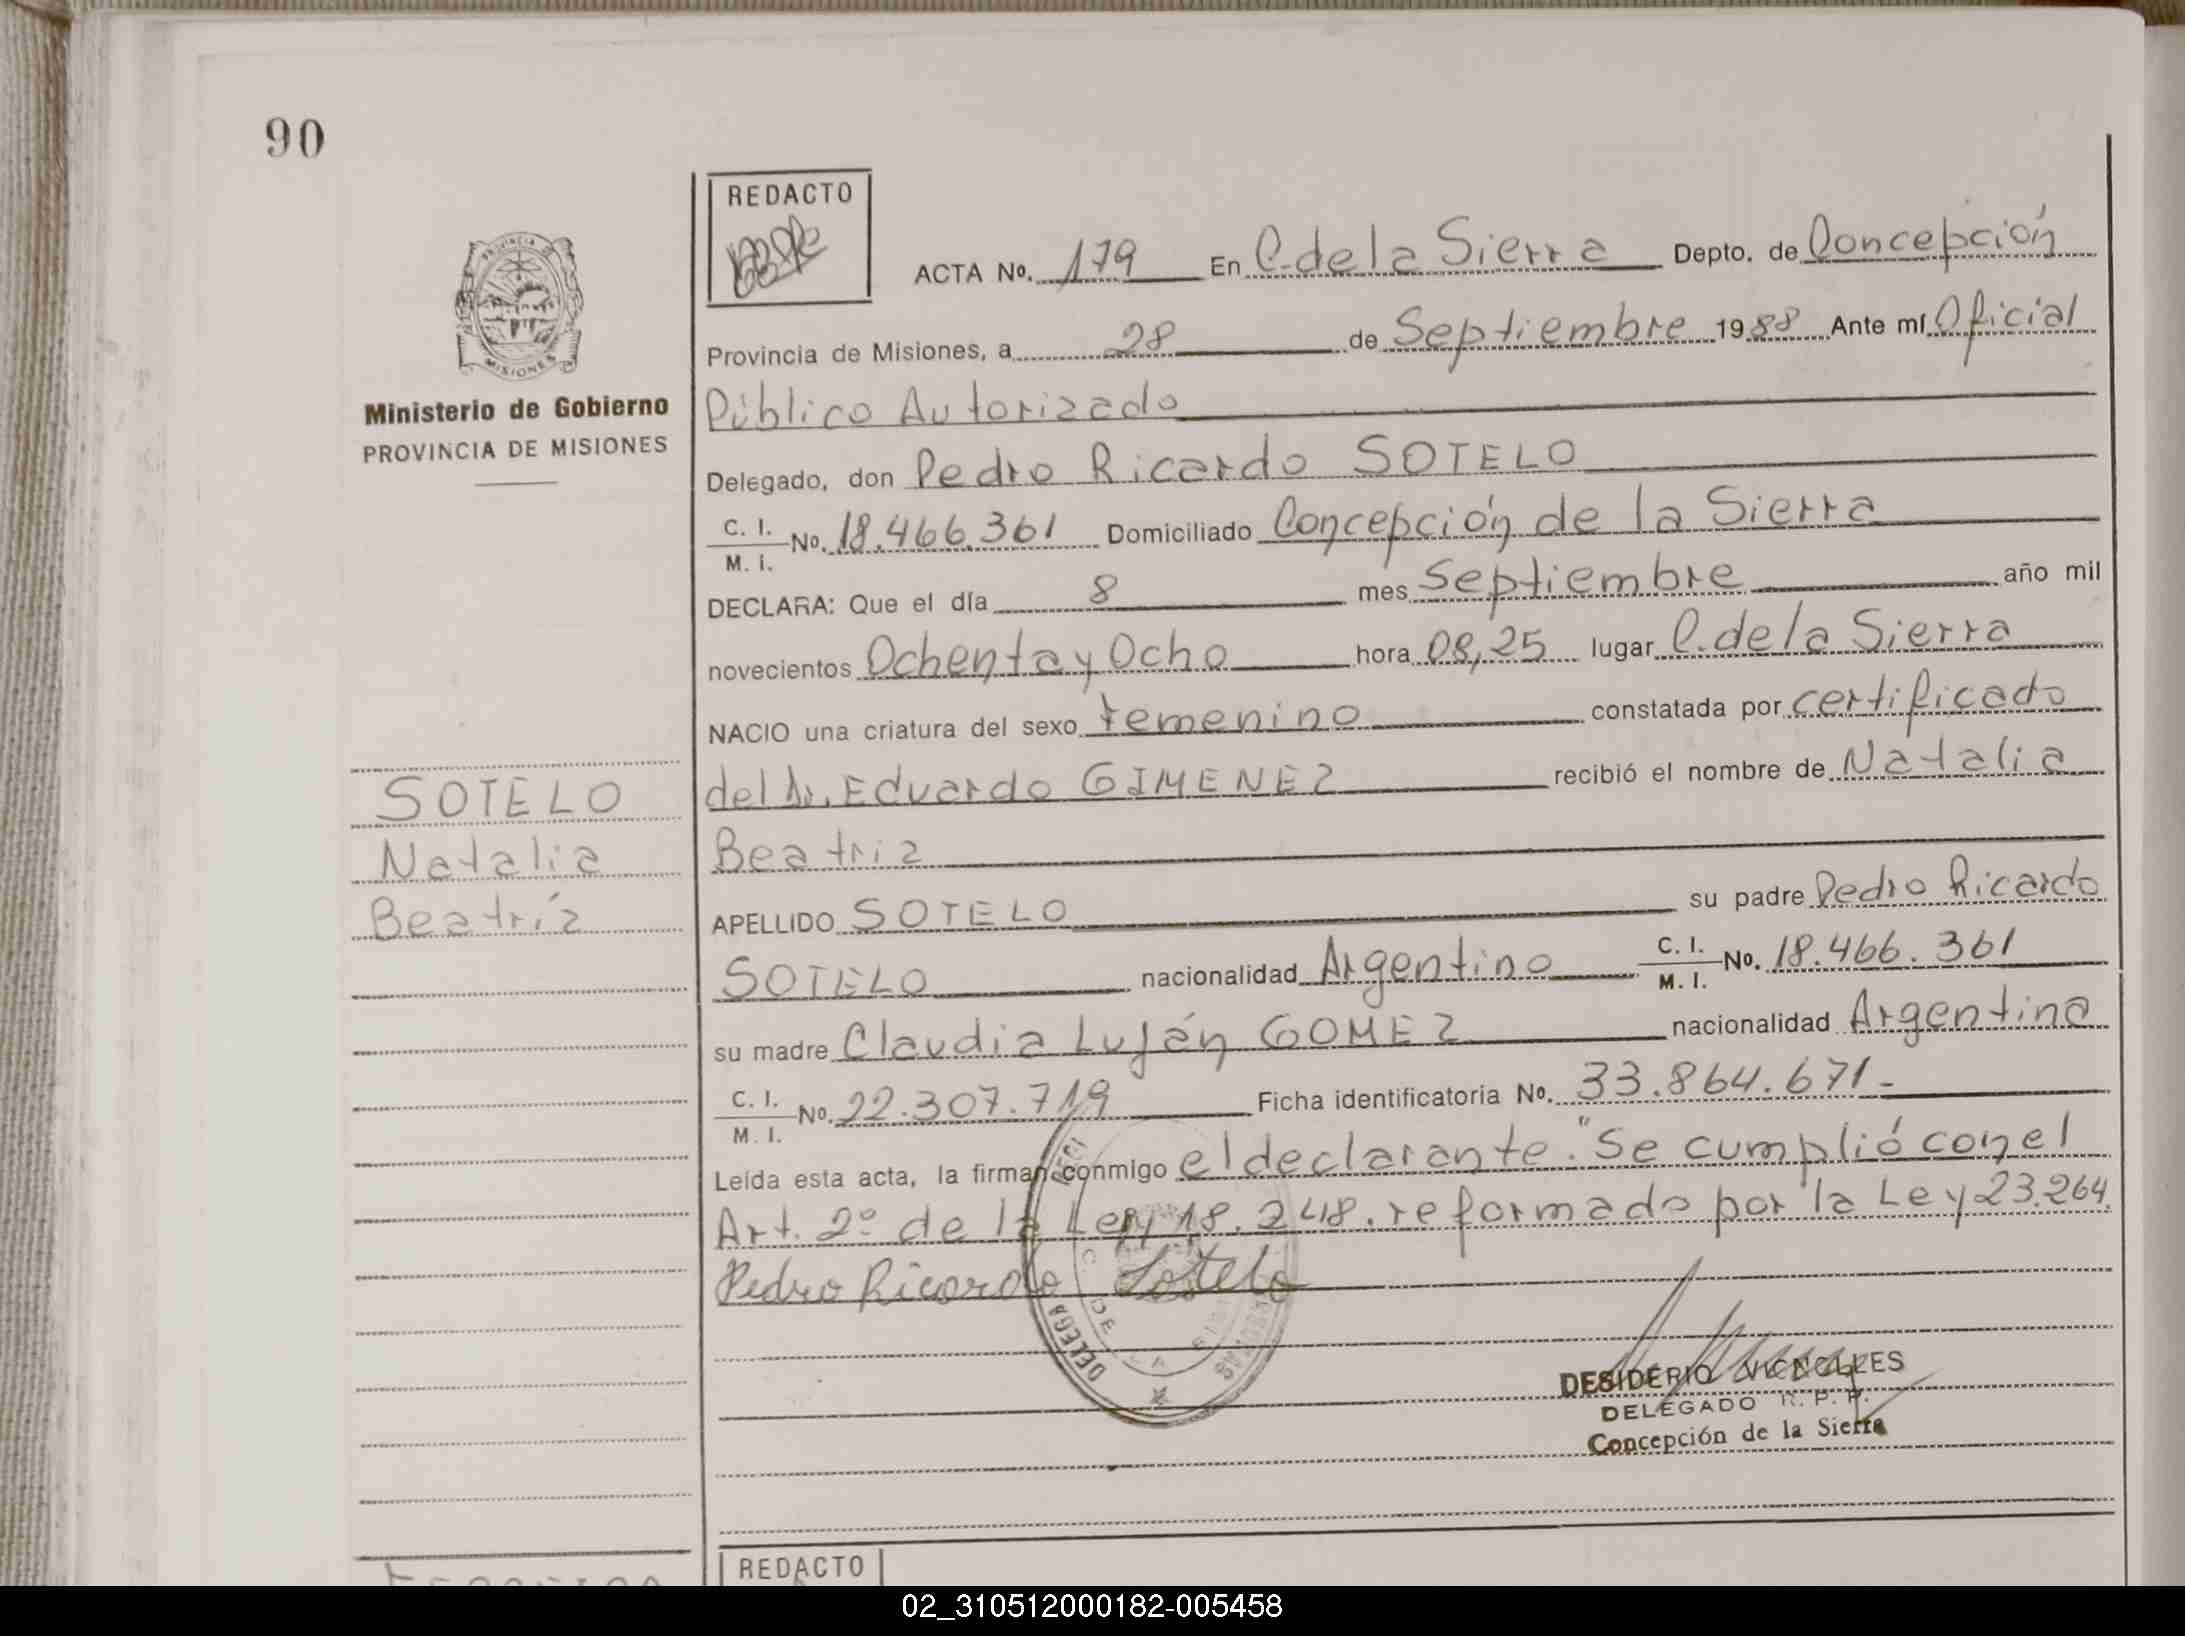 90
REDACTO
ACTA No. 179 En C. de la Sierra Depto. de Concepción
Provincia de Misiones, a 28 de Septiembre 1988 Ante mí Oficial
Ministerio de Gobierno
PROVINCIA DE MISIONES
Público Autorizado
Delegado, don Pedro Ricardo SOTELO
C. I.
M. I. No. 18.466.361 Domiciliado Concepción de la Sierra
DECLARA: Que el día 8 mes Septiembre año mil
novecientos Ochenta y Ocho hora 08,25 lugar C. de la Sierra
NACIO una criatura del sexo femenino constatada por certificado
del Dr. Eduardo GIMENEZ recibió el nombre de Natalia
Beatriz
SOTELO
Natalia
Beatríz
APELLIDO SOTELO su padre Pedro Ricardo
SOTELO nacionalidad Argentino C. I.
M. I. No. 18.466.361
su madre Claudia Luján GOMEZ nacionalidad Argentina
C. I.
M. I. No. 22.307.719 Ficha identificatoria No. 33.864.671.-
Leída esta acta, la firman conmigo el declarante. "Se cumplió con el
Art. 2º de la Ley 18.248. reformado por la Ley 23.264.
Pedro Ricardo Sotelo
DELEGA
DE LA
DESIDERIO
DELEGADO R. P. P.
Concepción de la Sierra
REDACTO
02_310512000182-005458